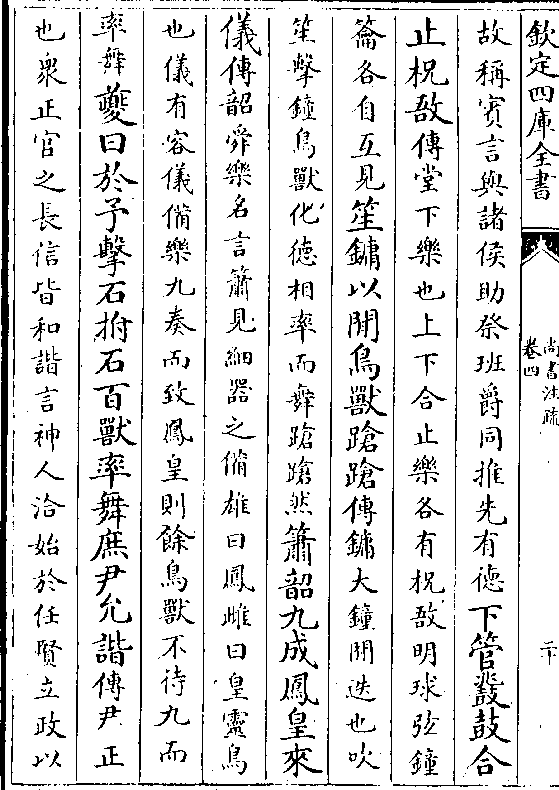 欽定四庫全書
尚書注疏
卷四
二十
故稱賓言與諸侯助祭班爵同推先有德下管鼗鼓合
止柷敔傳堂下樂也上下合止樂各有柷敔明球弦鐘
籥各自互見笙鏞以閒鳥獸蹌蹌傳鏞大鐘閒迭也吹
笙擊鐘鳥獸化德相率而舞蹌蹌然簫韶九成鳳皇來
儀傳韶舜樂名言簫見細器之備雄曰鳳雌曰皇靈鳥
也儀有容儀備樂九奏而致鳳皇則餘鳥獸不待九而
率舞夔曰於予擊石拊石百獸率舞庶尹允諧傳尹正
也衆正官之長信皆和諧言神人洽始於任賢立政以